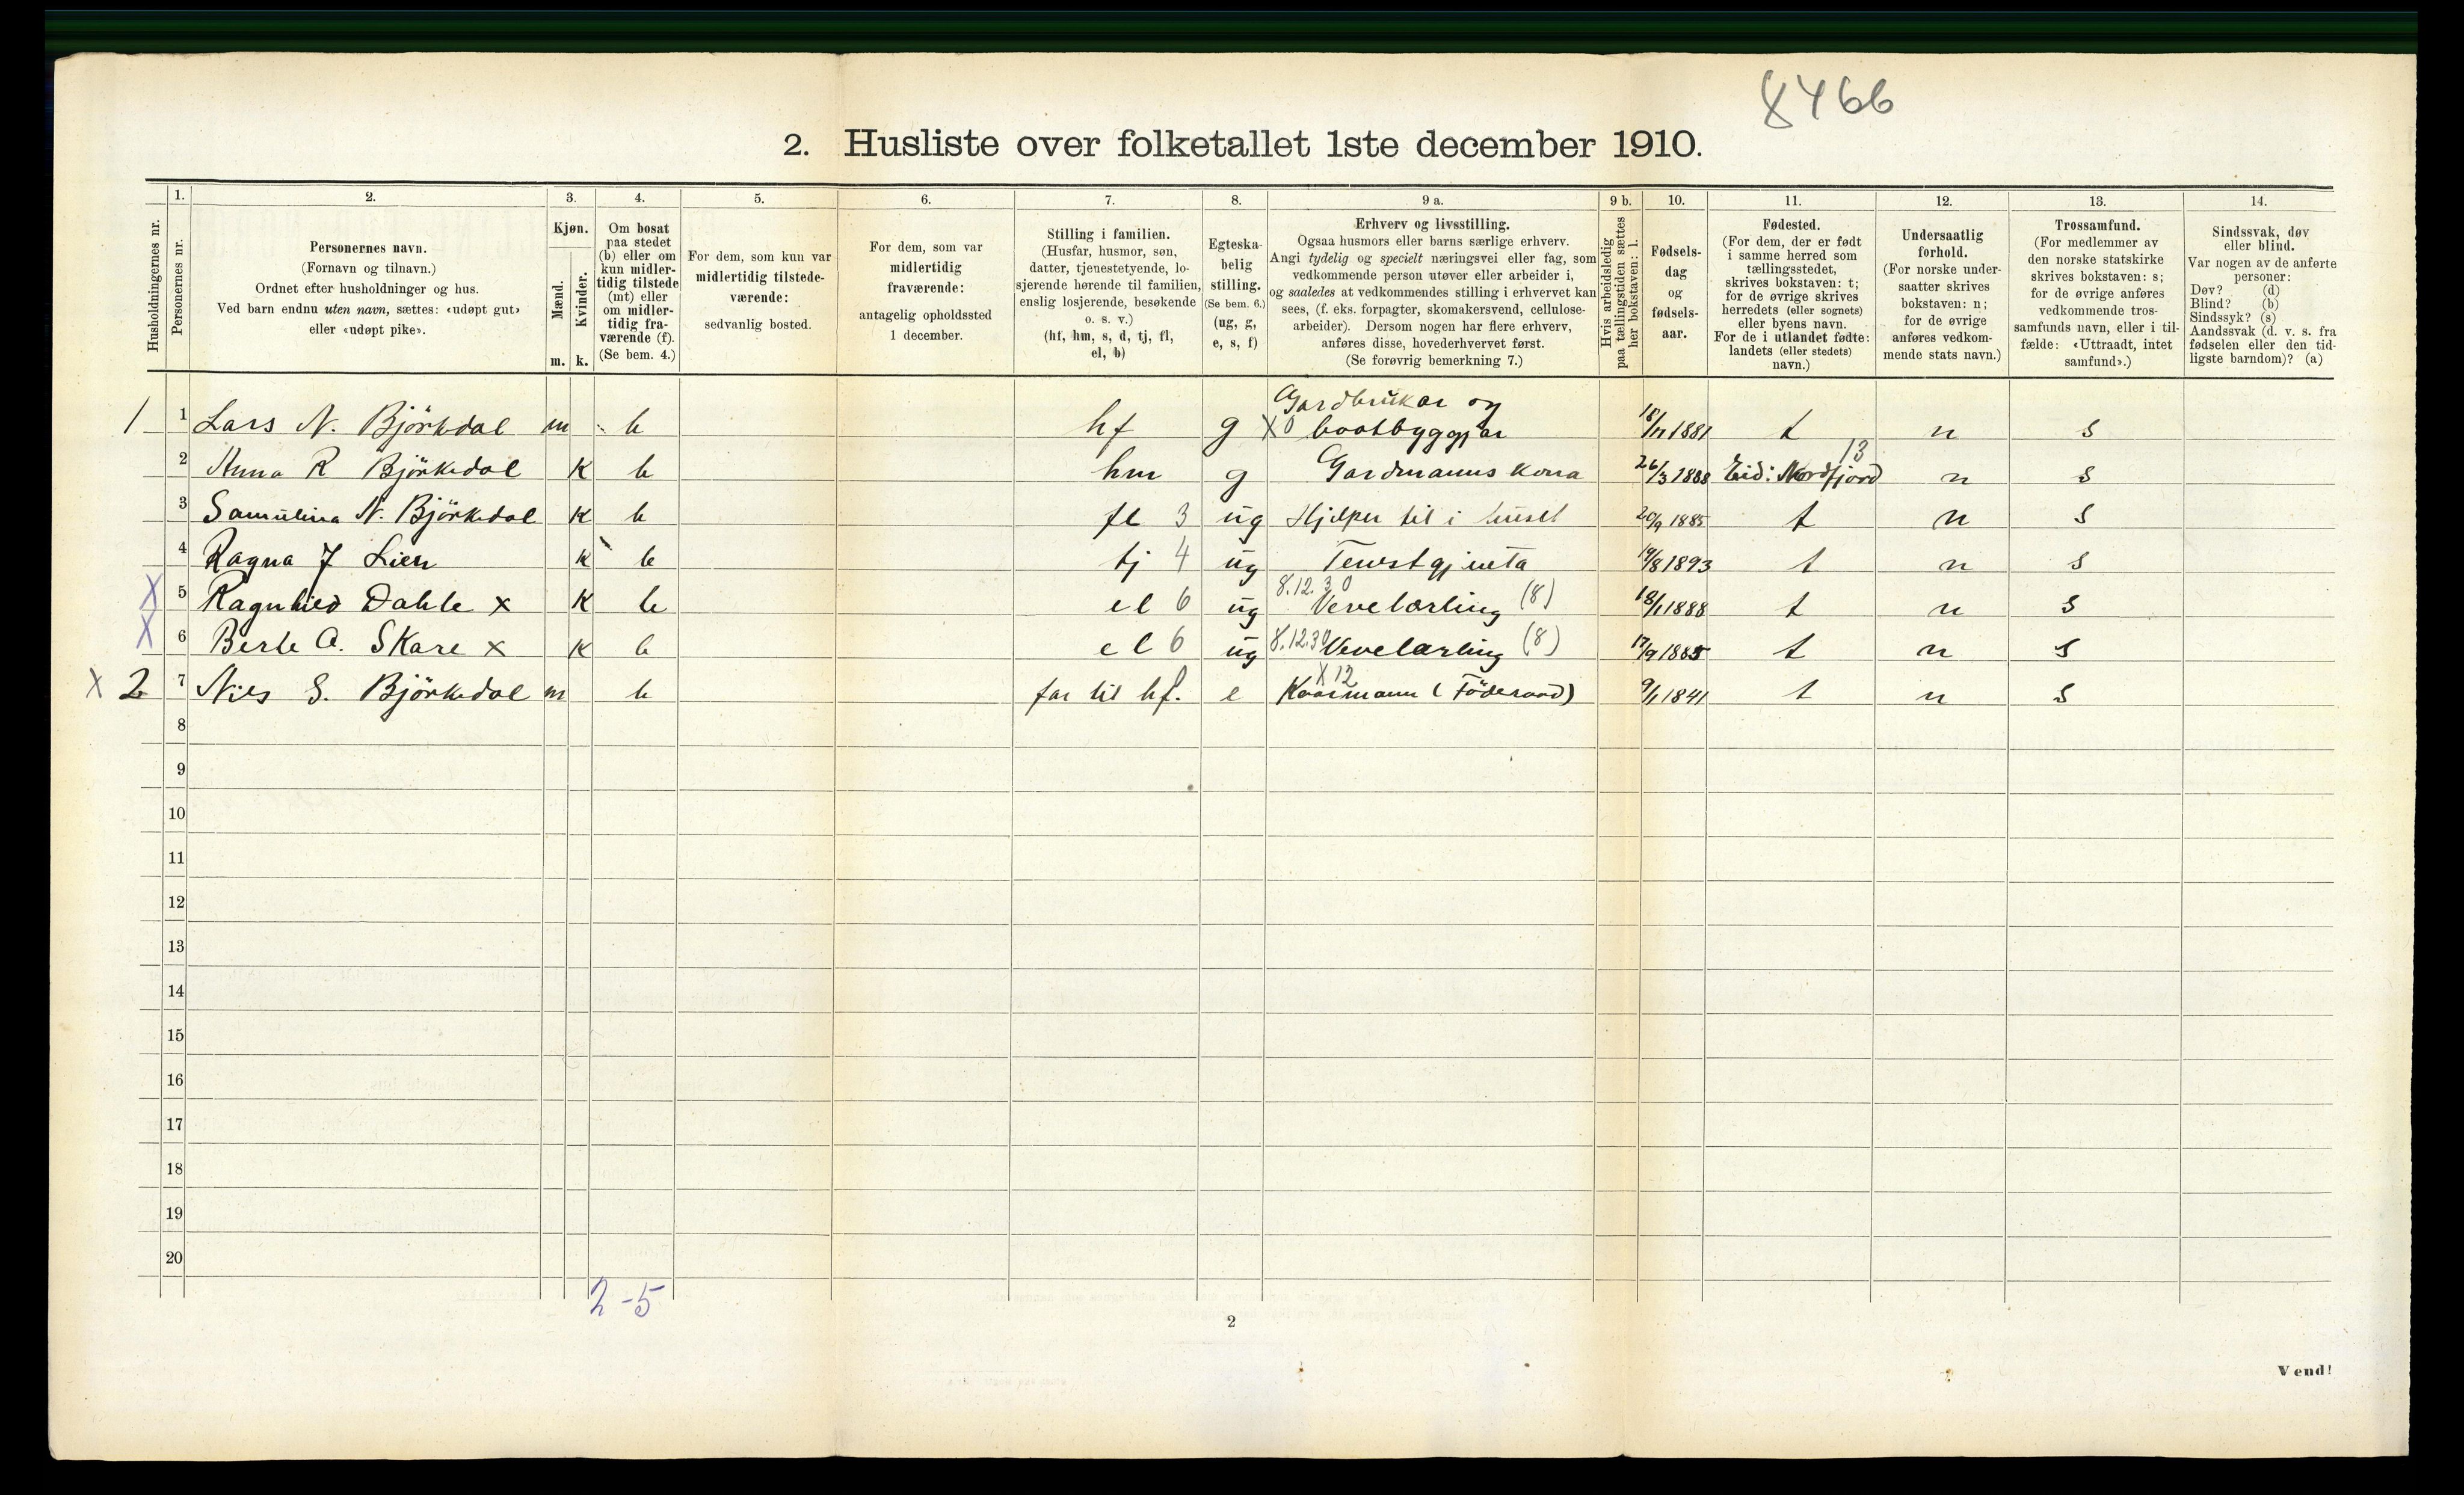 8466
2. Husliste over folketallet 1ste december 1910.
Husholdningernes nr.
1.
Personernes nr.
2.
Personernes navn.
(Fornavn og tilnavn.)
Ordnet efter husholdninger og hus.
Ved barn endnu uten navn, sættes: «udøpt gut»
eller «udøpt pike».
3.
Kjøn.
Mænd.
Kvinder.
m. k.
4.
Om bosat
paa stedet
(b) eller om
kun midler-
tidig tilstede
(mt) eller
om midler-
tidig fra-
værende (f).
(Se bem. 4.)
5.
For dem, som kun var
midlertidig tilstede-
værende:
sedvanlig bosted.
6.
For dem, som var
midlertidig
fraværende:
antagelig opholdssted
1 december.
7.
Stilling i familien.
(Husfar, husmor, søn,
datter, tjenestetyende, lo-
sjerende hørende til familien,
enslig losjerende, besøkende
o. s. v.)
(hf, hm, s, d, tj, fl,
el, b)
8.
Egteska-
belig
stilling.
(Se bem. 6.)
(ug, g,
e, s, f)
9 a.
Erhverv og livsstilling.
Ogsaa husmors eller barns særlige erhverv.
Angi tydelig og specielt næringsvei eller fag, som
vedkommende person utøver eller arbeider i,
og saaledes at vedkommendes stilling i erhvervet kan
sees, (f. eks. forpagter, skomakersvend, cellulose-
arbeider). Dersom nogen har flere erhverv,
anføres disse, hovederhvervet først.
(Se forøvrig bemerkning 7.)
9 b.
Hvis arbeidsledig
paa tællingstiden sættes
her bokstaven: l.
10.
Fødsels-
dag
og
fødsels-
aar.
11.
Fødested.
(For dem, der er født
i samme herred som
tællingsstedet,
skrives bokstaven: t;
for de øvrige skrives
herredets (eller sognets)
eller byens navn.
For de i utlandet fødte:
landets (eller stedets)
navn.)
12.
Undersaatlig
forhold.
(For norske under-
saatter skrives
bokstaven: n;
for de øvrige
anføres vedkom-
mende stats navn.)
13.
Trossamfund.
(For medlemmer av
den norske statskirke
skrives bokstaven: s;
for de øvrige anføres
vedkommende tros-
samfunds navn, eller i til-
fælde: «Uttraadt, intet
samfund».)
14.
Sindssvak, døv
eller blind.
Var nogen av de anførte
personer:
Døv? (d)
Blind? (b)
Sindssyk? (s)
Aandssvak (d. v. s. fra
fødselen eller den tid-
ligste barndom)? (a)
Gardbrukar og
1 1 Lars N. Björkdal m b hf g X0 baatbyggjar 18/11 1881 t n s
13
2 Anna R Björkedal k b hm g Gardmanns kona 26/3 1888 Eid: Nordfjord n s
3 Samulina N. Björkedal k b fl 3 ug Hjelper til i huset 20/9 1885 t n s
4 Ragna J Lien k b tj 4 ug Tenestgjenta 19/8 1893 t n s
8.12.30
X 5 Ragnhild Dahle x k b el 6 ug Vevelærling (8) 18/1 1888 t n s
X 6 Berte A. Skare x k b el 6 ug 8.12.30 Vevelærling (8) 17/9 1885 t n s
X 12
X 2 7 Nils S. Björkedal m b far til hf. e Kaarmann (Föderaad) 9/1 1841 t n s
8
9
10
11
12
13
14
15
16
17
18
19
20
2-5
2
Vend!